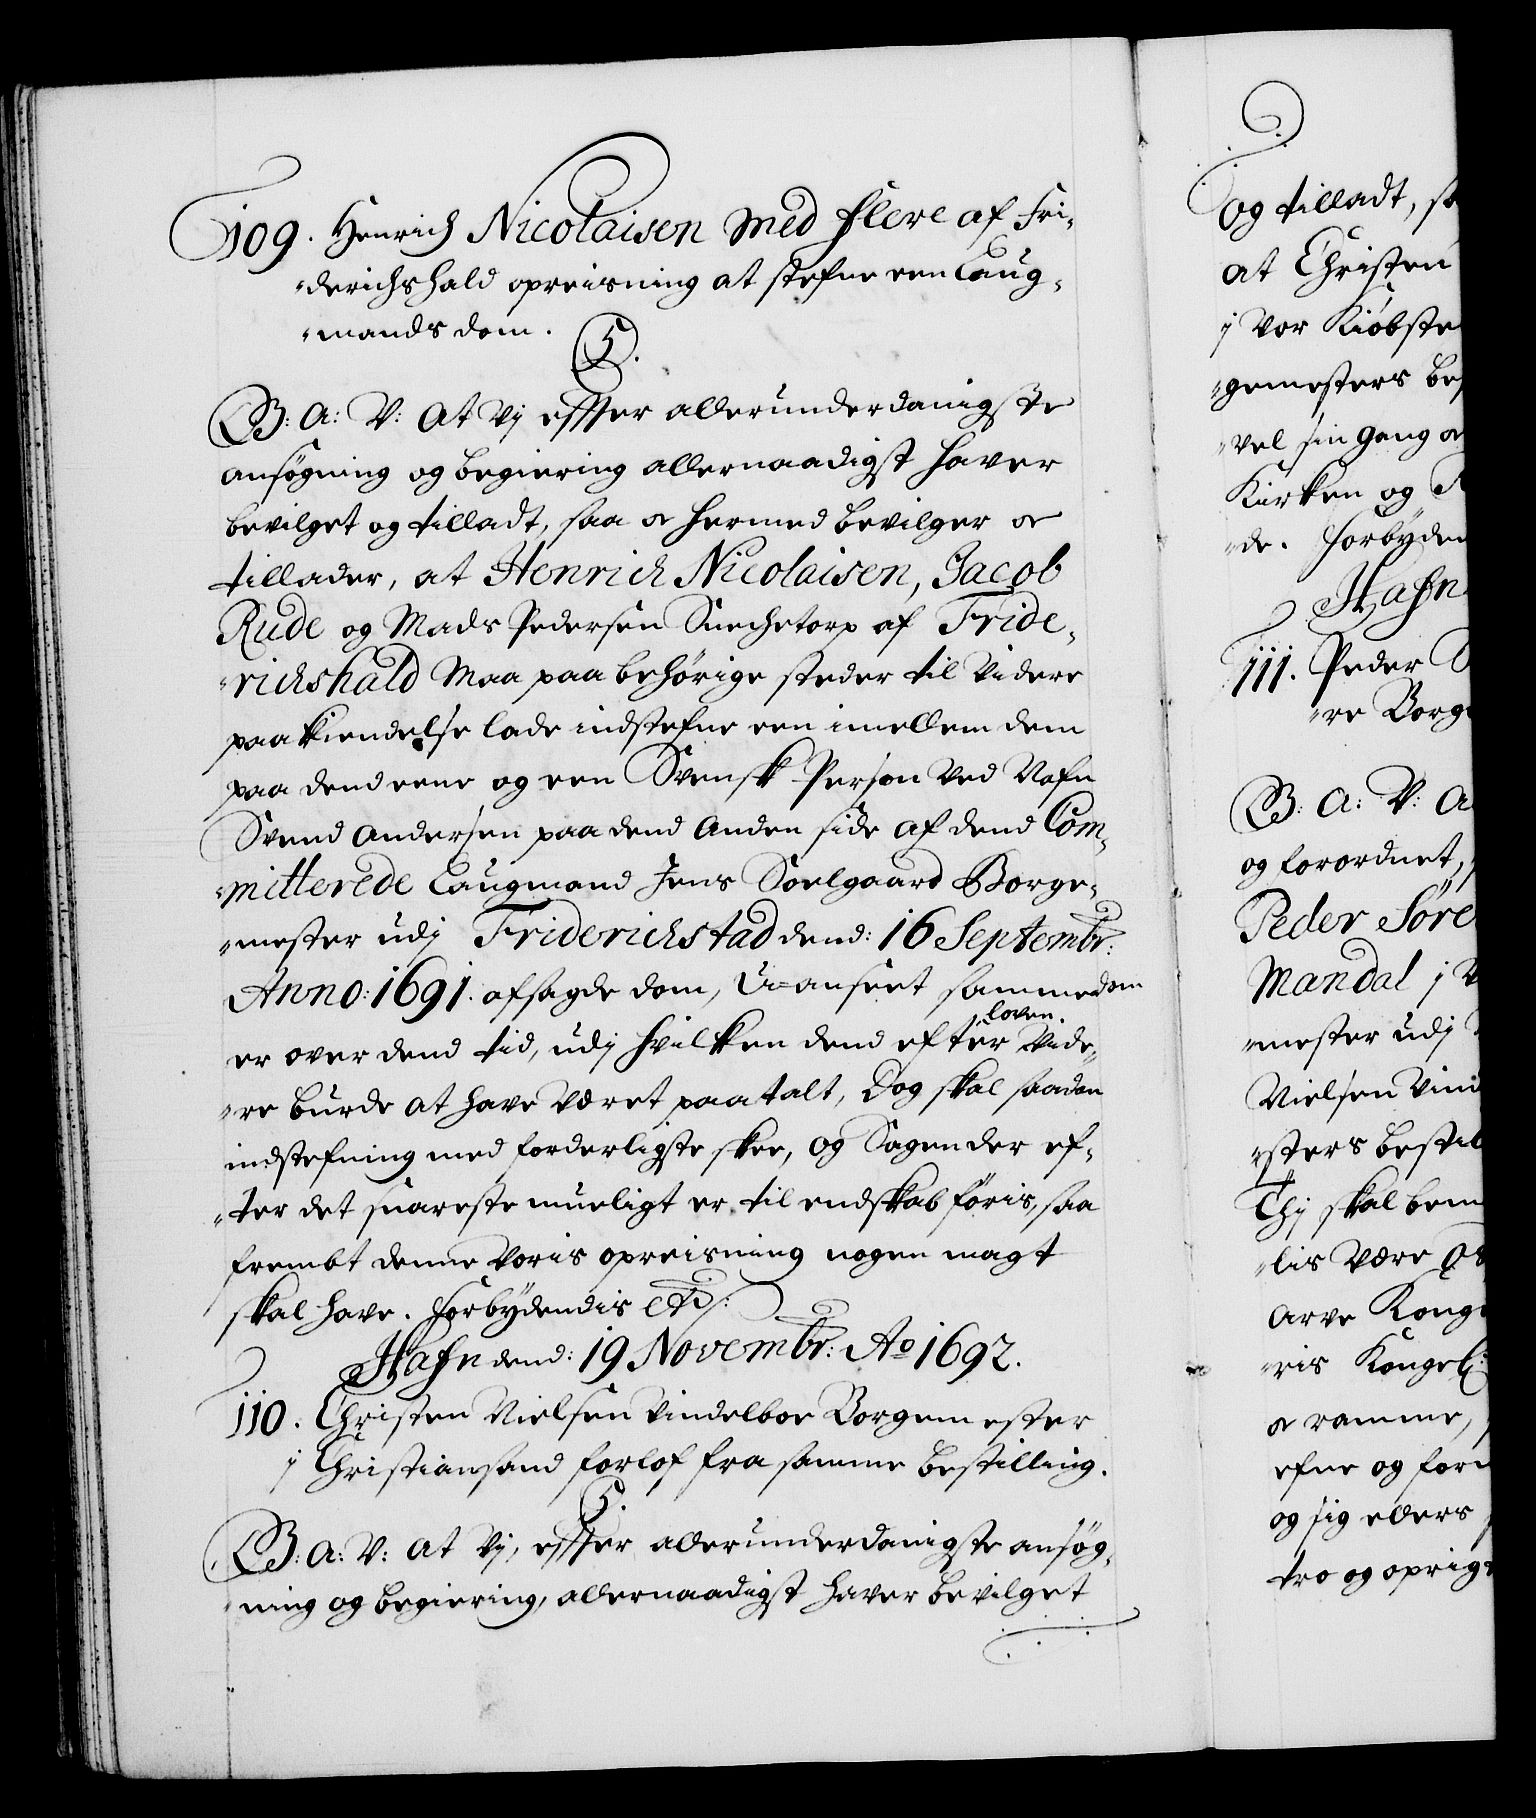 109. Henrich Nicolaisen med flere af Fri-
derichshald opreisning at stefne een Laug-
mands dom.
5.
B: A: V: At Vj effter allerunderdanigste
ansøgning og begiering allernaadigst haver
bevilget og tilladt, saa oc hermed bevilger oc
tillader, at Henrich Nicolaisen, Jacob
Rude og Mads Pedersen af Fride-
richshald Maa paa behørige steder til Videre
paakiendelse lade indstefne een imellem dem
paa dend eene og een Svensk Person Ved Nafn
Svend Andersen paa dend Anden side af dend Com-
mitterede Laugmand Jens Soelgaard Borge-
mester udj Friderichstad dend: 16 Septembr:
Anno: 1691. afsagde dom, U=anseet samme dom
er over dend tid, udj hvilken dend efter Loven Vide-
re burde at have Været paatalt, Dog skal saadan
indstefning med forderligste skee, og Sagen der ef-
ter det snareste mueligt er til endskab føris, saa
frembt denne Voris opreisning nogen magt
skal have. Forbydendis etc:
Hafn dend: 19 Novembr: Ao 1692.
110. Christen Nielsen Vindelboe Borgemester
j Christiansand forlof fra samme bestilling.
5.
B: A: V: At Vj, effter allerunderdanigste ansøg-
ning og begiering, allernaadigst haver bevilget
og tilladt,
at Christen
j Vor Kiøbste
gemesters bes
vel sin gang oc
Kirken og
de. Forbyden
Hafn
111. Peder
re Borge
B: A: V: A
og forordnet,
Peder Søre
Mandal j
mester udj
Nielsen Vind
sters bestil
Thj skal bem
lis Være
Arve Konge
ris Kongel:
oc ramme,
efne og for
og sig ellers
tro og oprig